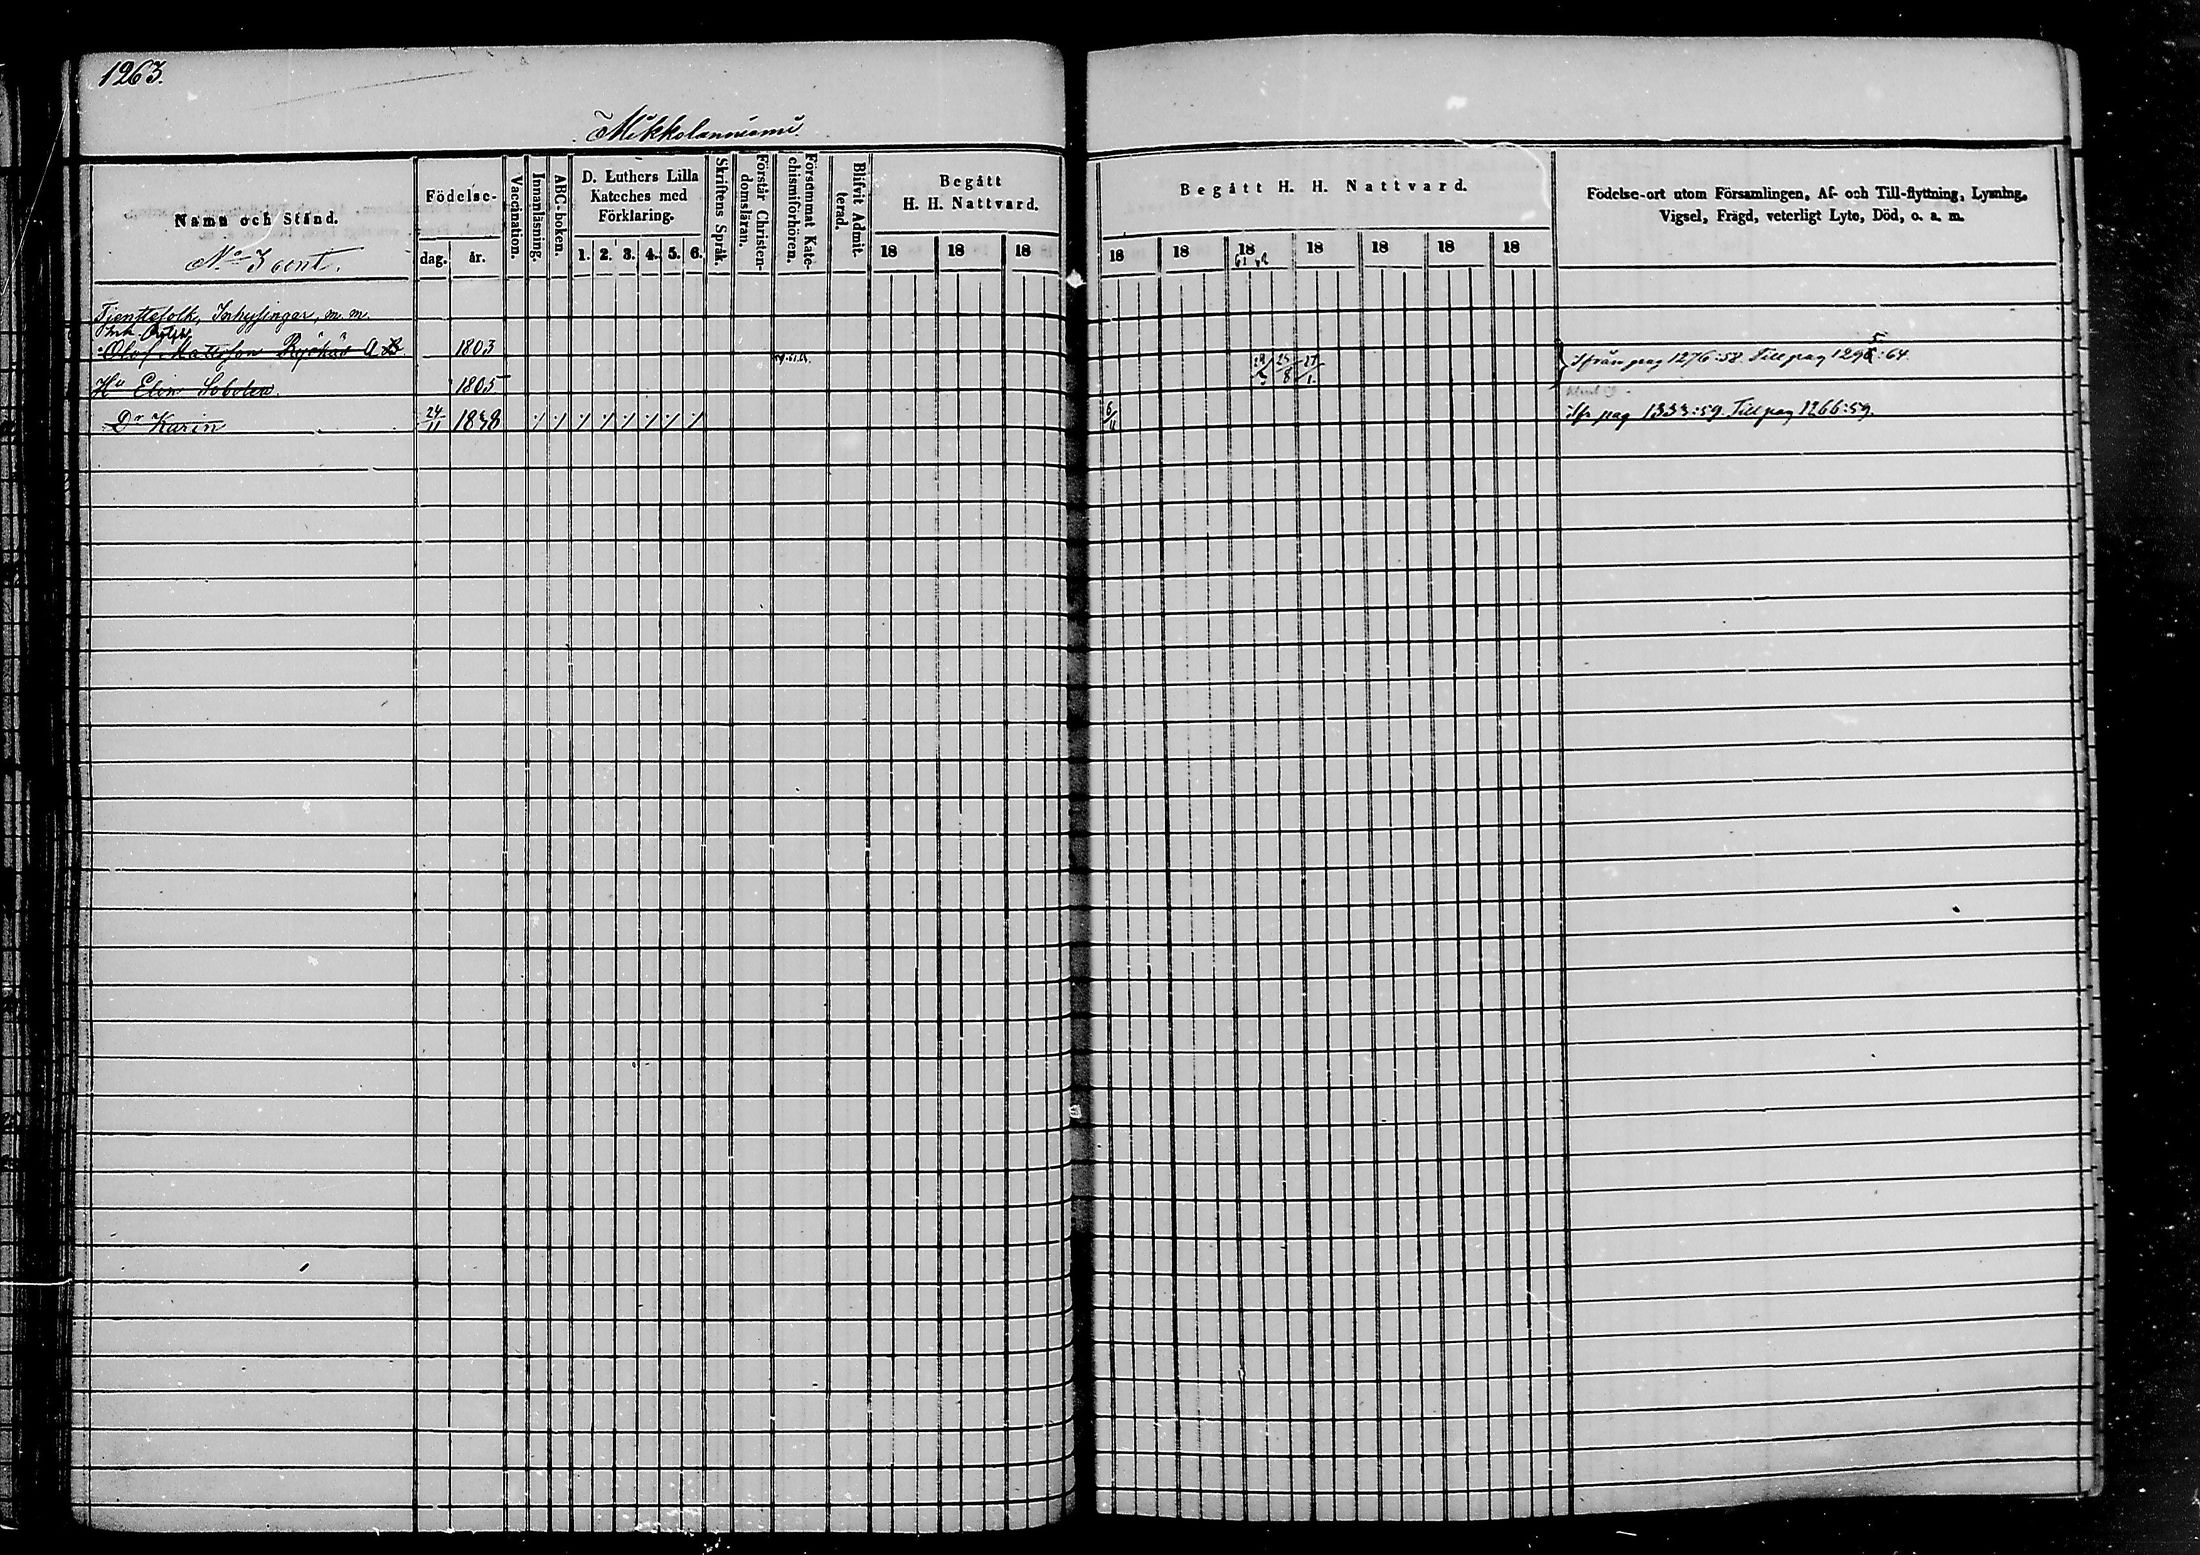 1263.
Mikkolanniemi.
Namn och Stånd.
No 3 cont.
Födelse-
dag. år.
Vaccination.
Innanläsning.
ABC-boken.
D. Luthers Lilla
Kateches med
Förklaring.
1. 2. 3. 4. 5. 6.
Skriftens Språk.
Förstår Christen-
domsläran.
Försummat Kate-
chismiförhören.
Blifvit Admit-
terad.
Begått
H. H. Nattvard.
18 18 18
Begått H. H. Nattvard.
18 18 18 18 18 18 18
61
Födelse-ort utom Församlingen, Af- och Till-flyttning, Lysning,
Vigsel, Frägd, veterligt Lyte, Död, o. a. m.
Tjenstefolk, Inhysingar, m. m.
Olof Mattsson 1803 ifrån pag 1276:58. Till pag 1295:64.
Hu Elin Sobolew 1805
Dr Karin 24/11 1838 6/11 ifr pag 1333:59. Till pag 1266:59.